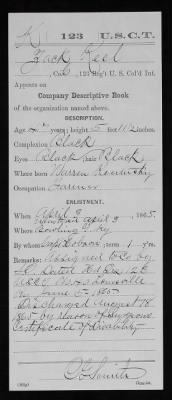 K | 123 | U.S.C.T.
Zack Keel
, Co. , 123 Reg't U. S. Col'd Inf.
Appears on
Company Descriptive Book
of the organization named above.
DESCRIPTION.
Age years; height 5 feet 11½ inches.
Complexion Black
Eyes Black ; hair Black
Where born Warren Kentucky
Occupation Farmer
ENLISTMENT.
When April 3 , 1865.
Where Bowling G. Ky
By Capt Hobson ; term 1 y'rs.
Remarks: Assigned to Co by
12th
USCA Louisville
Ky June 5. 1865
Discharged August 18
1865 by reason of Surgeons
certificate of disability
Copyist.